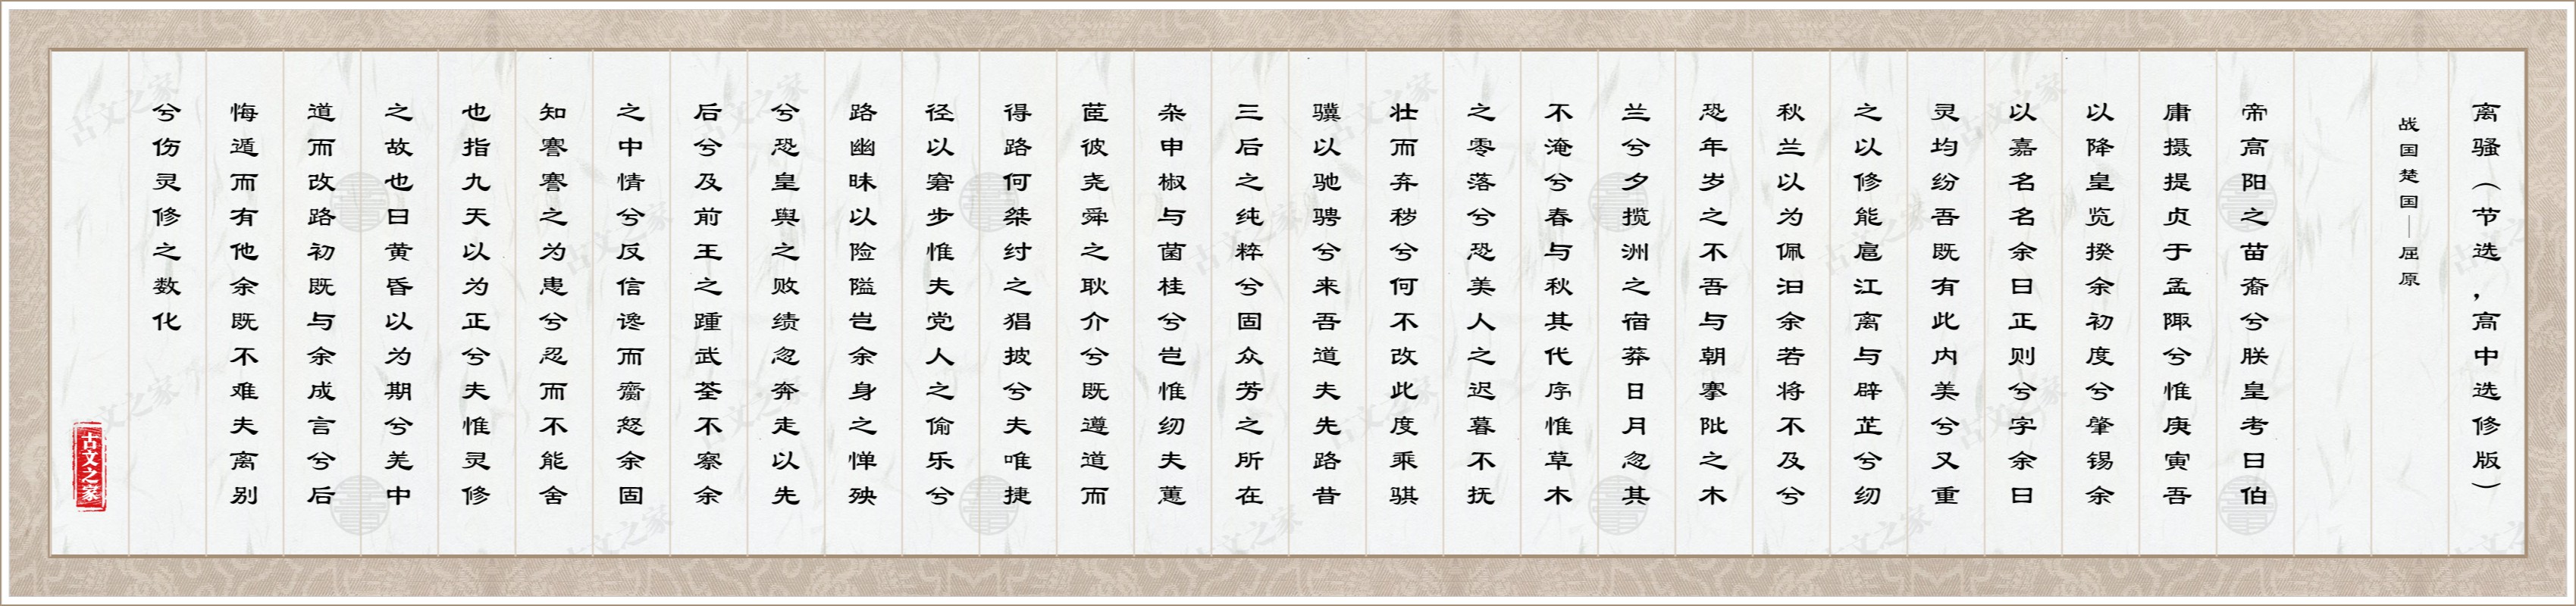 离骚（节选，高中选修版）
战国楚国—屈原
帝高阳之苗裔兮朕皇考曰伯
庸摄提贞于孟陬兮惟庚寅吾
以降皇览揆余初度兮肇锡余
以嘉名名余曰正则兮字余曰
灵均纷吾既有此内美兮又重
之以修能扈江离与辟芷兮纫
秋兰以为佩汩余若将不及兮
恐年岁之不吾与朝搴阰之木
兰兮夕揽洲之宿莽日月忽其
不淹兮春与秋其代序惟草木
之零落兮恐美人之迟暮不抚
壮而弃秽兮何不改此度乘骐
骥以驰骋兮来吾道夫先路昔
三后之纯粹兮固众芳之所在
杂申椒与菌桂兮岂惟纫夫蕙
茝彼尧舜之耿介兮既遵道而
得路何桀纣之猖披兮夫唯捷
径以窘步惟夫党人之偷乐兮
路幽昧以险隘岂余身之惮殃
兮恐皇舆之败绩忽奔走以先
后兮及前王之踵武荃不察余
之中情兮反信谗而齌怒余固
知謇謇之为患兮忍而不能舍
也指九天以为正兮夫惟灵修
之故也曰黄昏以为期兮羌中
道而改路初既与余成言兮后
悔遁而有他余既不难夫离别
兮伤灵修之数化
古文之家